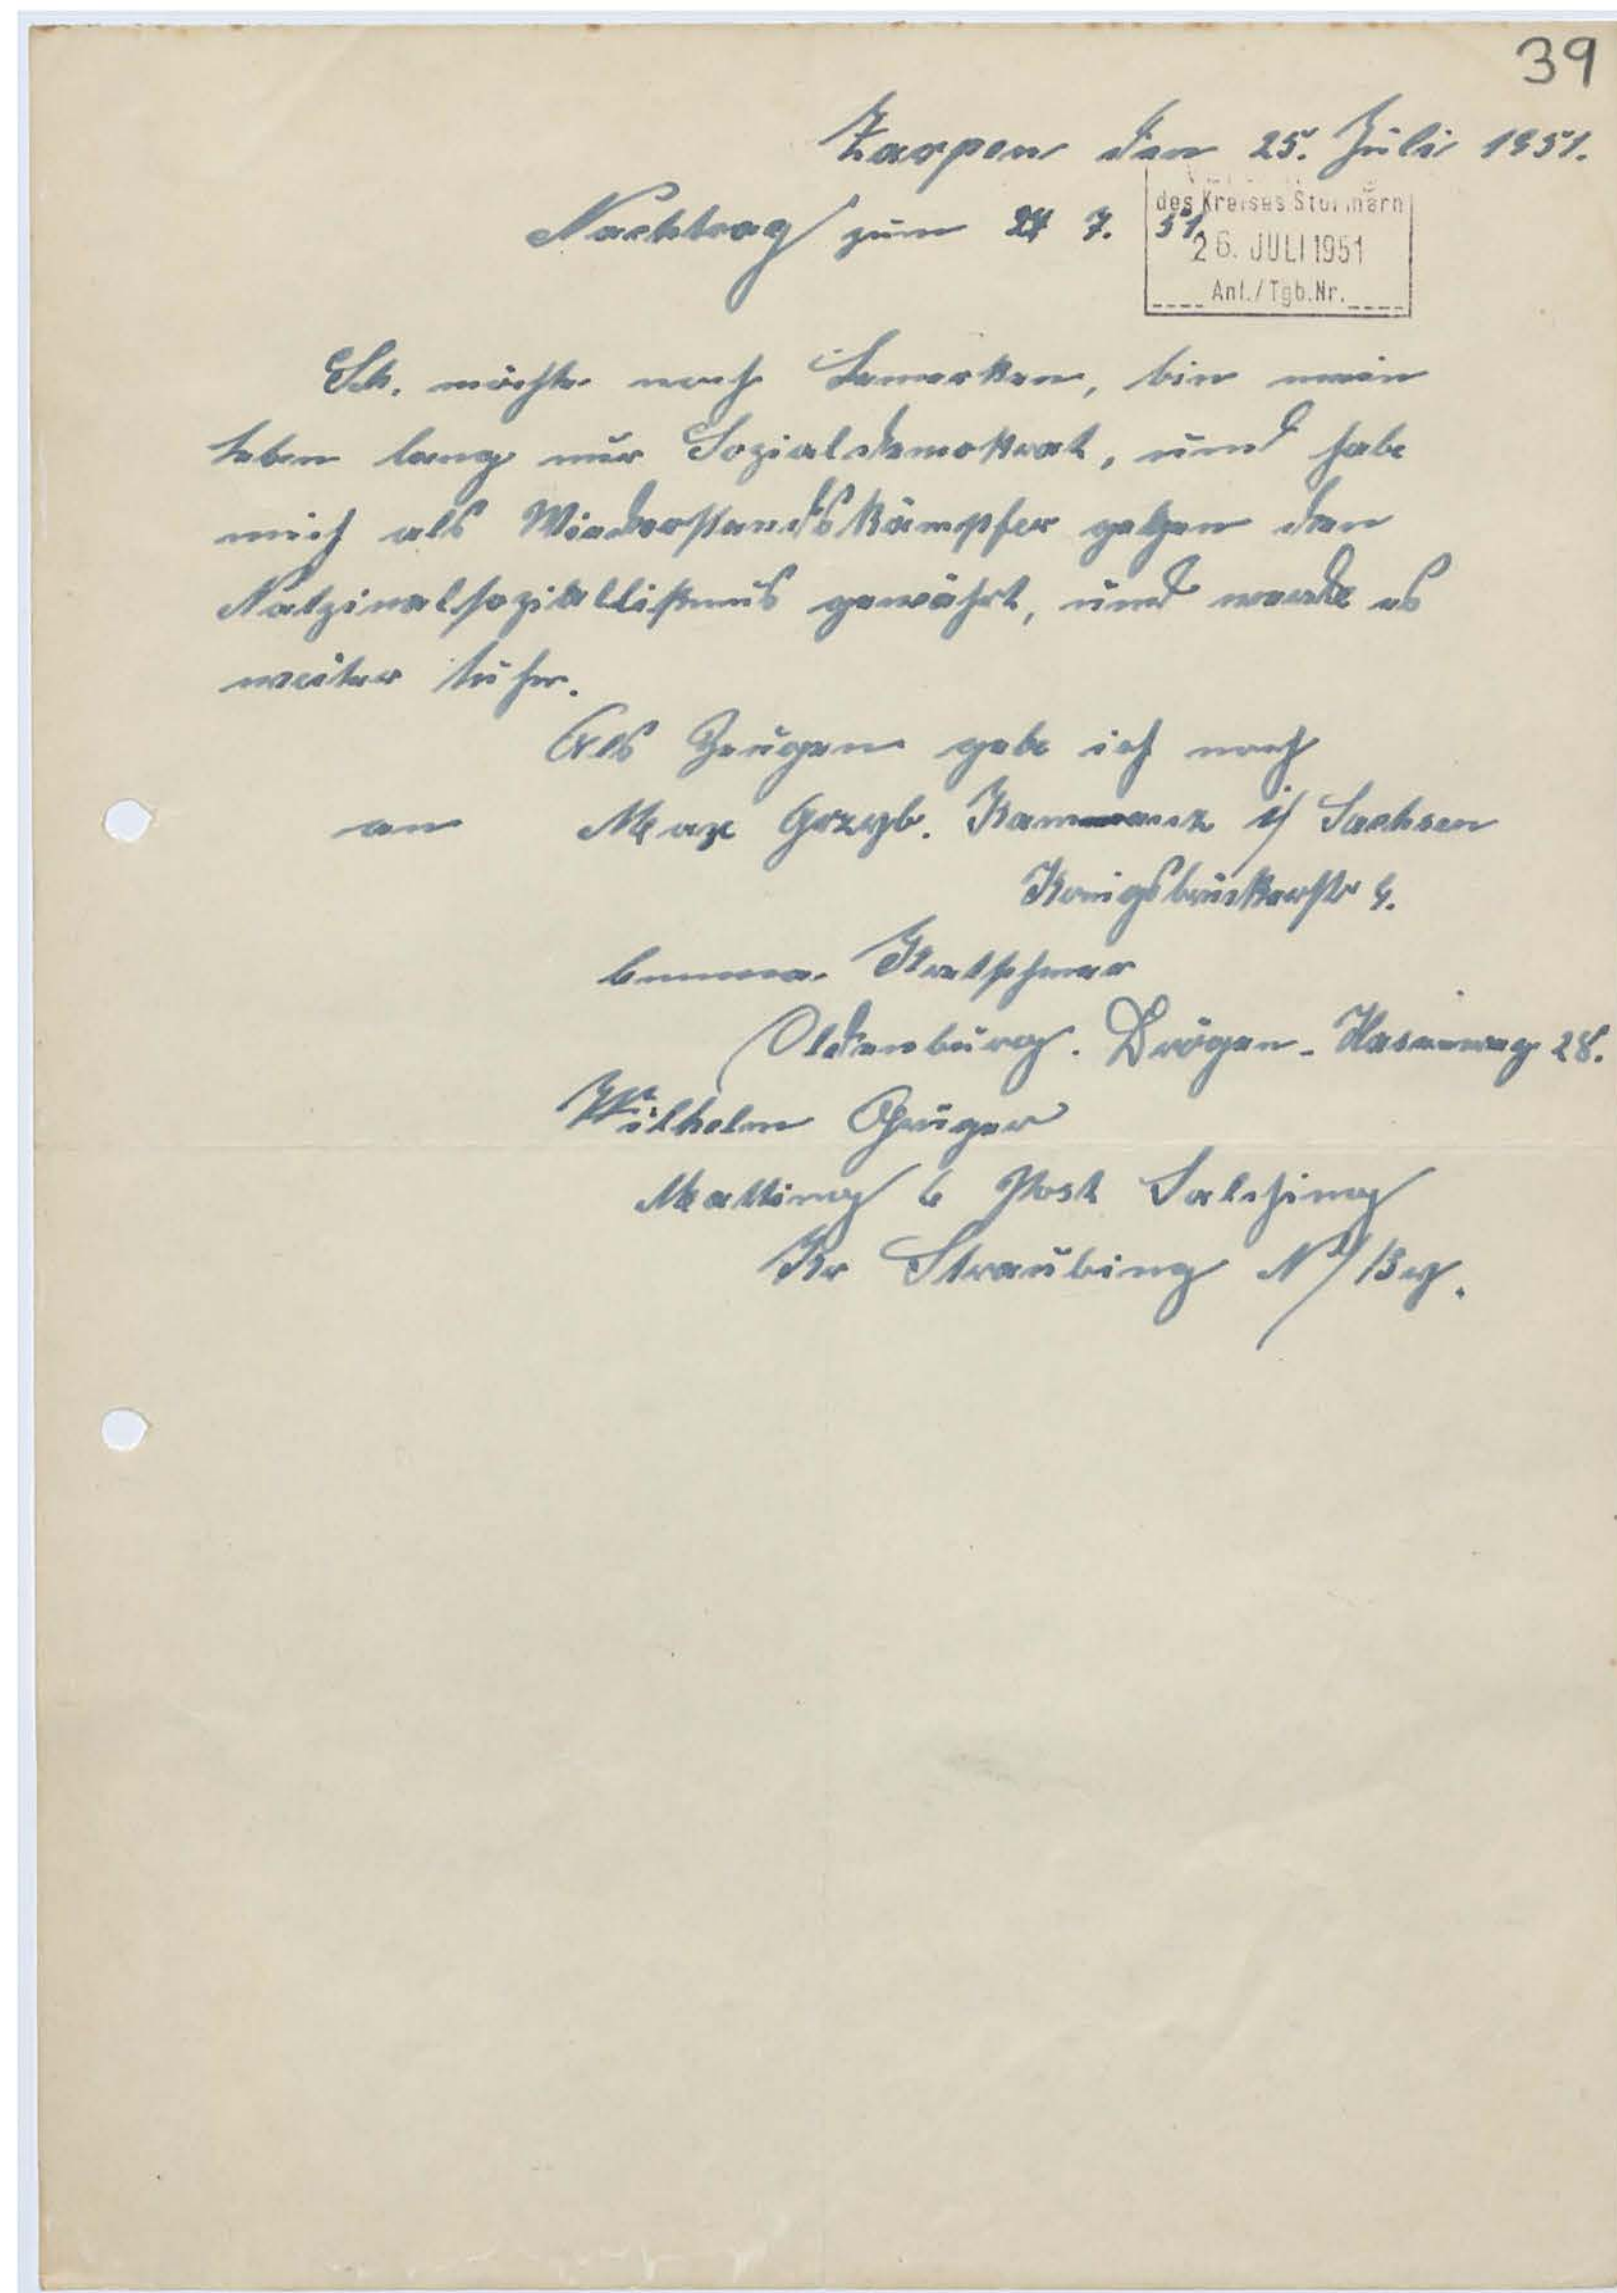 39
Zarpen den 25. Juli 1951.
Nachtrag zum 24 7. 51.
des Kreises Stormarn
26. JULI 1951
Anl./Tgb.Nr.
Ich. möchte noch bemerken, bin mein
leben lang nur Sozialdemokrat, und habe
mich als Wiederstandskämpfer gegen den
Natzinalsoziallismus gewährt, und werde es
weiter tuhn.
Als Zeugen gebe ich noch
an Max Grzyb. Kammenz i/ Sachsen
Königsbrückerstr
Emma. Kretschmer
Oldenburg. Drögen-Hasenweg 28.
Wilhelm
Matting 6 Post Salching
Kr Straubing N/Bay.